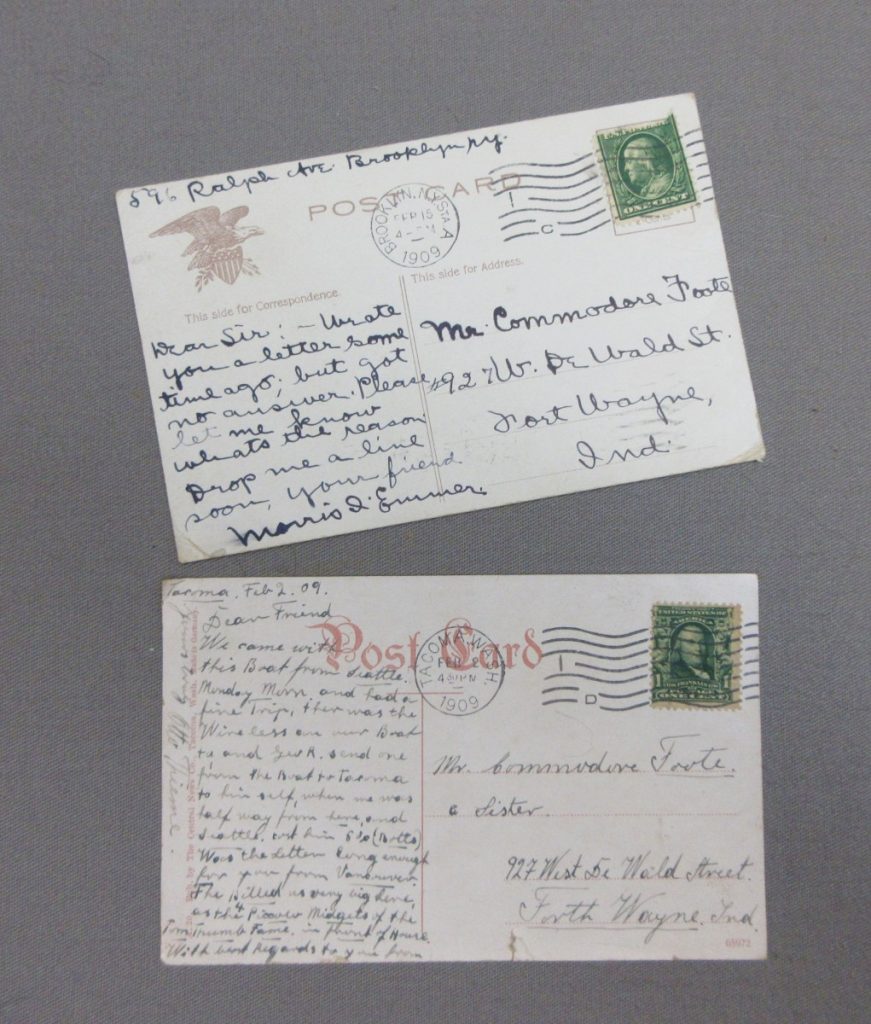 596 Ralph Ave. Brooklyn NY.
POST CARD
BROOKLYN, N.Y. STA. A
FEB 15
4-PM
1909
C
ONE CENT
This side for Correspondence.
This side for Address.
Dear Sir:- Wrote
you a letter some
time ago; but got
no answer. Please
let me know
whats the reason.
Drop me a line
soon, your friend
Morris I. Emmer.
Mr. Commodore Foote
#927 W. De Wald St.
Fort Wayne,
Ind.
Tacoma. Feb 2. 09.
Dear Friend
We came with
this Boat from Seattle.
Monday Morn. and had a
fine Trip, ther was the
Wireless on our Boat
to, and Geo R. send one
from the Boat to Tacoma
to him self, when we was
half way from here, and
Seattle. cost him (Botts)
Was the Letter long enough
for you from Vancouver.
The billed us very big here,
as the 4 Midgets of the
Tom Trumb Fame. in front of House.
With best Regards to you from
Post Card
TACOMA, WASH.
FEB 2
4 PM
1909
D
UNITED STATES OF AMERICA
ONE CENT
Mr. Commodore Foote.
& Sister.
927 West De Wald Street.
Forth Wayne. Ind.